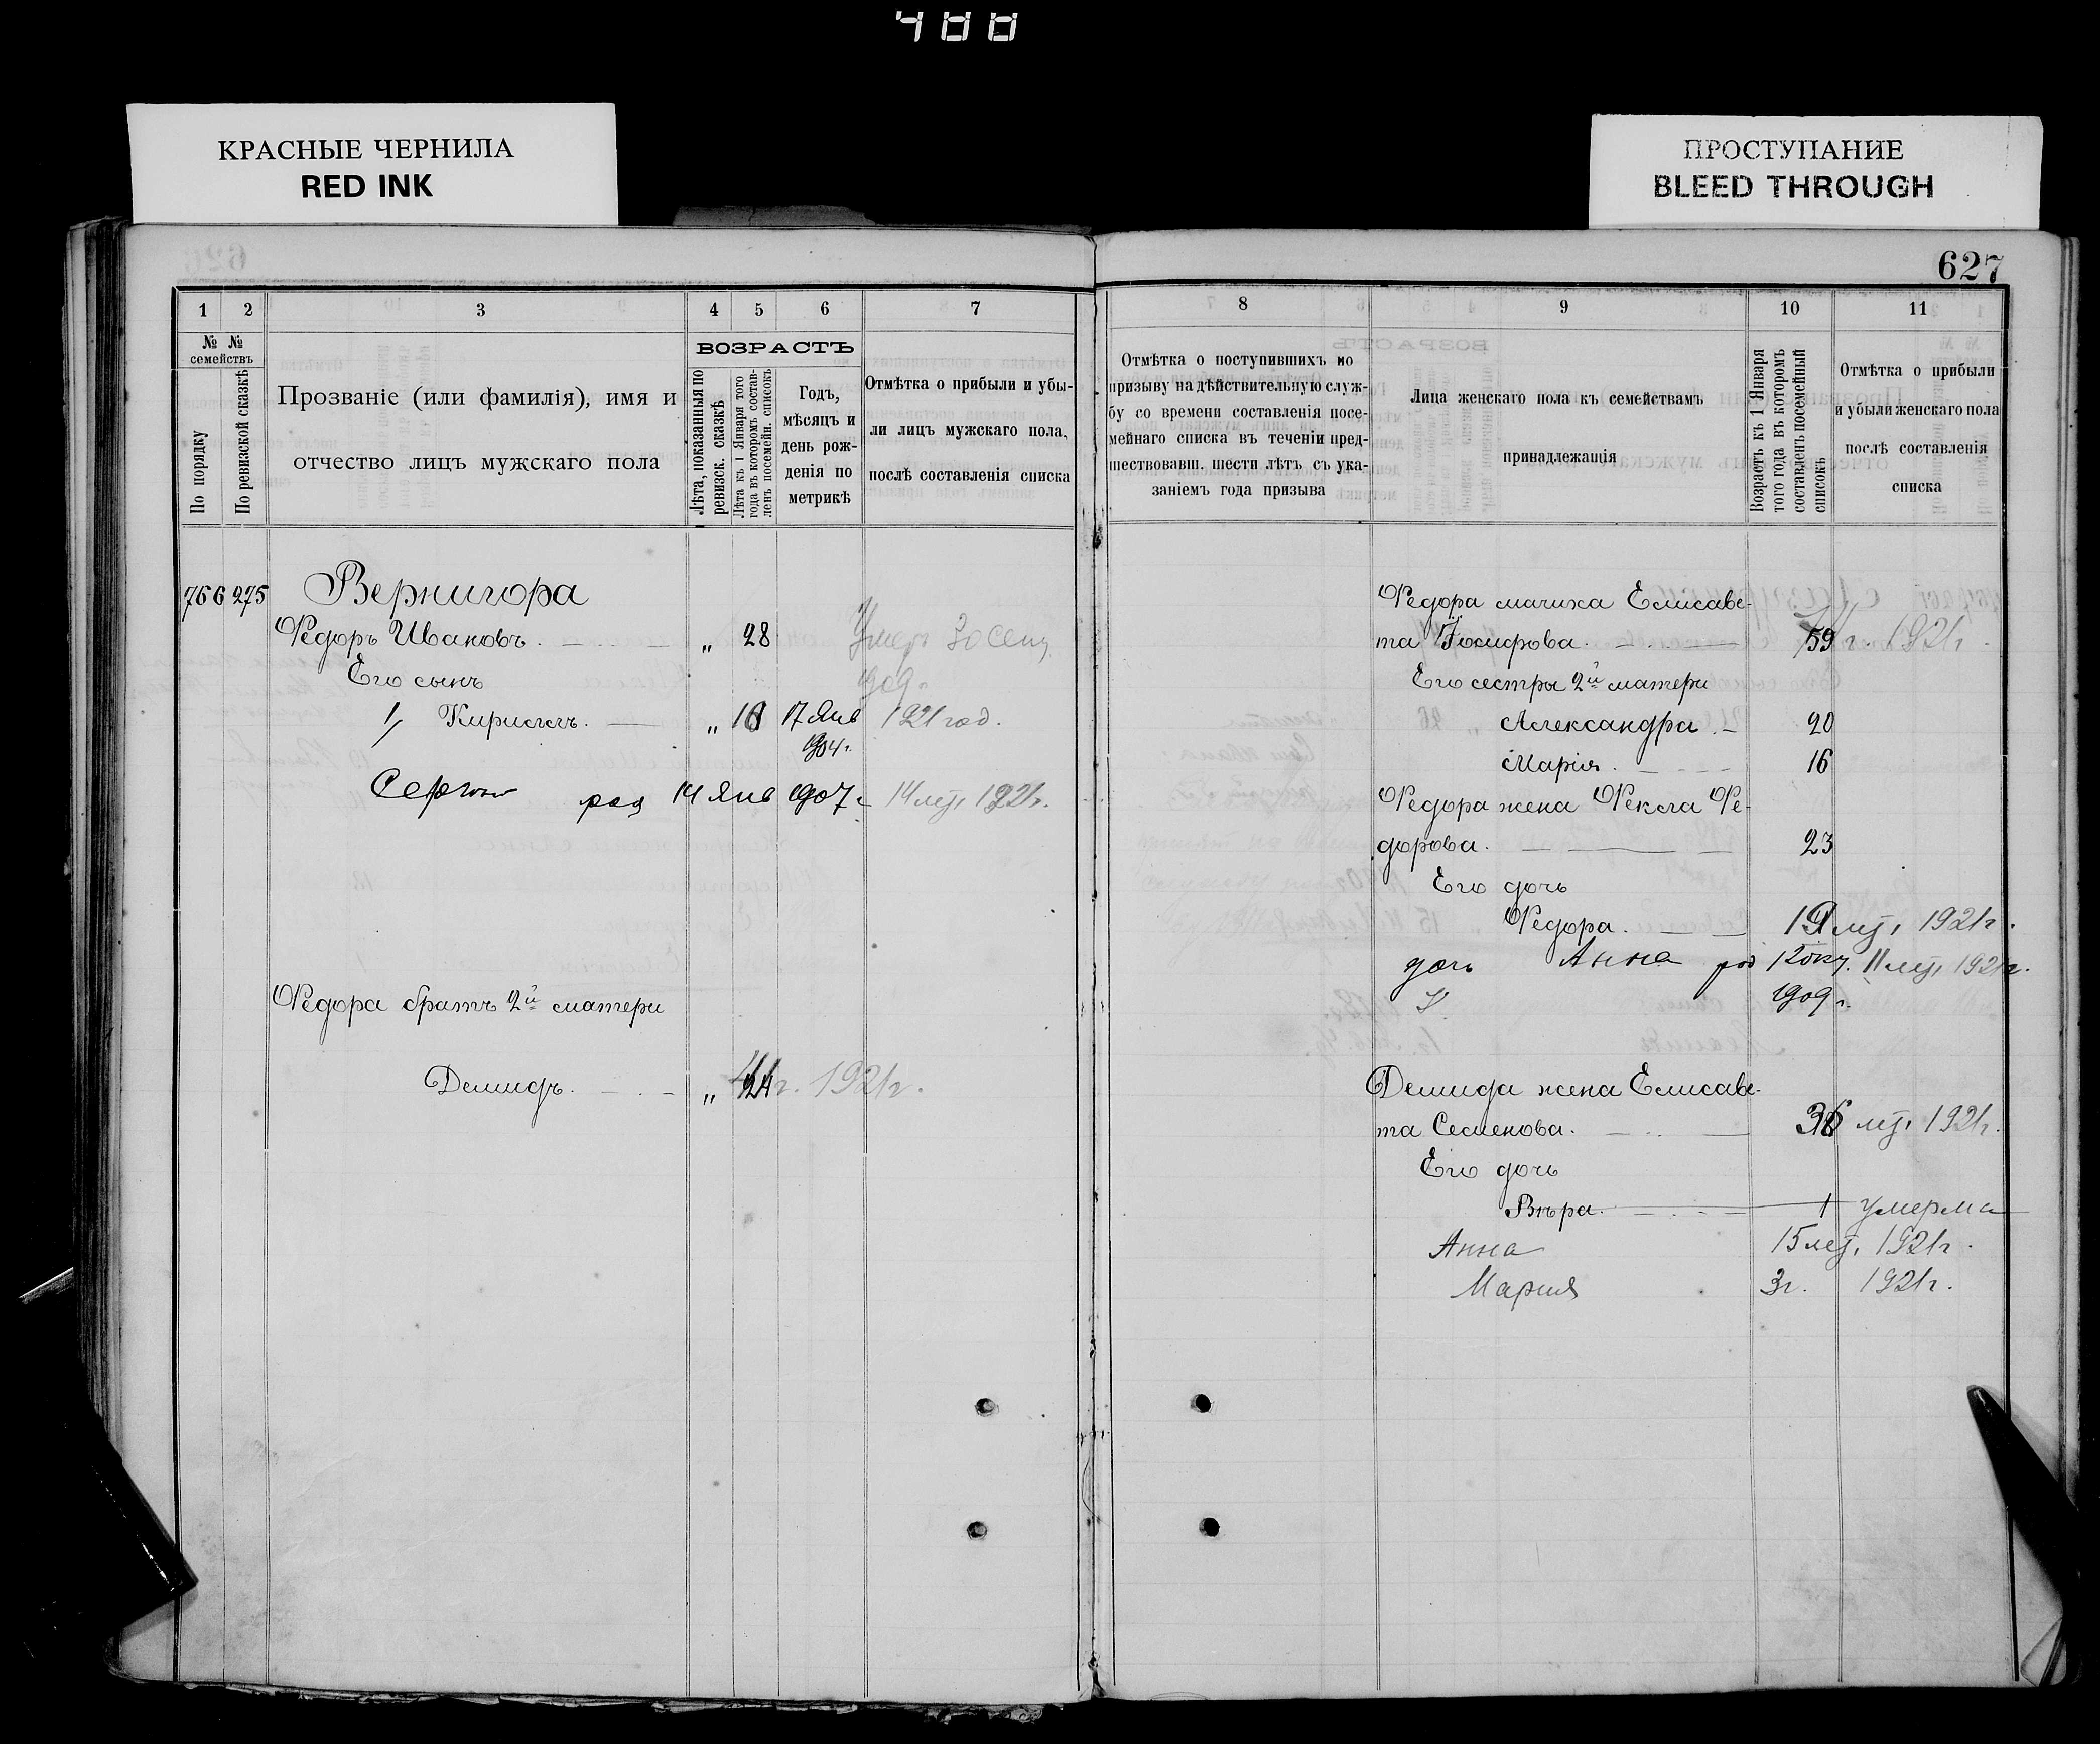 488
КРАСНЫЕ ЧЕРНИЛА
RED INK
ПРОСТУПАНИЕ
BLEED THROUGH
627
1 2 3 4 5 6 7
№ № семействъ
По порядку
По ревизской сказкѣ
Прозваніе (или фамилія), имя и
отчество лицъ мужскаго пола
ВОЗРАСТЪ
Лѣта, показанныя по
ревизск. сказкѣ
Лѣта къ 1 Января того
года въ которомъ состав-
ленъ посемейн. списокъ
Годъ,
мѣсяцъ и
день рож-
денія по
метрикѣ
Отмѣтка о прибыли и убы-
ли лицъ мужскаго пола,
послѣ составленія списка
766 275 Вернигора
Ѳедоръ Ивановъ. „ 28 Умеръ 30 Сен,
909г.
Его сынъ
1, Кириллъ. „ 17 Янв 1921 год.
904г.
Сергѣй род 14 Янв 907г 14 лѣт, 1921г.
Ѳедора братъ 2й матери
Демидъ. „ 44г. 1921г.
8 9 10 11
Отмѣтка о поступившихъ по
призыву на дѣйствительную служ-
бу со времени составленія посе-
мейнаго списка въ теченіи пред-
шествовавш. шести лѣтъ съ ука-
заніемъ года призыва
Лица женскаго пола къ семействамъ
принадлежащія
Возрастъ къ 1 Января
того года въ которомъ
составленъ посемейный
списокъ
Отмѣтка о прибыли
и убыли женскаго пола
послѣ составленія
списка
Ѳедора мачиха Елисаве-
та Іосифова. 59 г. 1921г.
Его сестры 2й матери
Александра. 20
Марія. 16
Ѳедора жена Ѳекла Ѳе-
дорова. 23
Его дочь
Ѳедора. лѣт, 1921г.
дочь Анна род 12 окт. 11 лѣт, 1921г.
909г.
Демида жена Елисаве-
та Семенова. 36 лѣт, 1921г.
Его дочь
Вѣра. 1 умерла
Анна 15 лет, 1921г.
Мария 3г. 1921г.